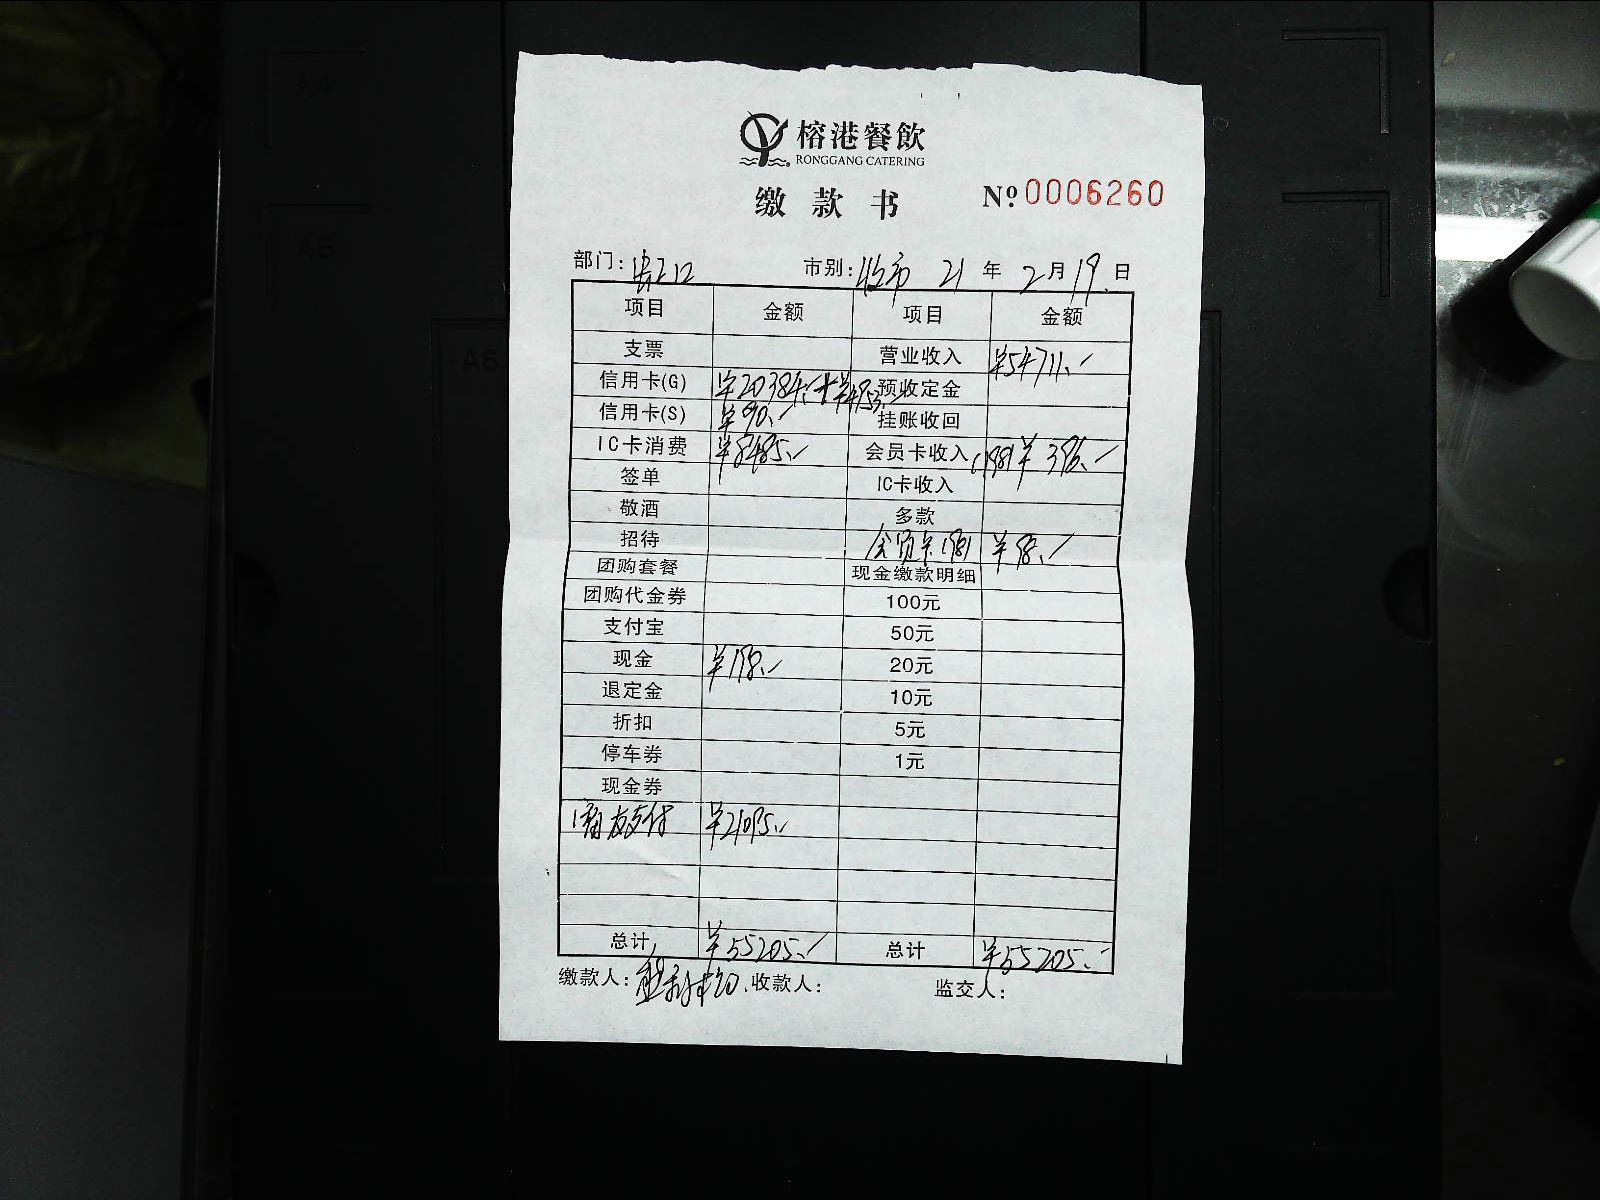 榕港餐飲
RONGGANG CATERING
缴款书 Nº 0006260
部门: 市别: 收市 21 年 2 月 19 日
项目 金额 项目 金额
支票 营业收入 ¥54711.
信用卡(G) 预收定金
信用卡(S) ¥90. 挂账收回
IC卡消费 ¥8485. 会员卡收入 ¥396.
签单 IC卡收入
敬酒 多款
招待 会员卡 ¥98.
团购套餐 现金缴款明细
团购代金券 100元
支付宝 50元
现金 ¥198. 20元
退定金 10元
折扣 5元
停车券 1元
现金券
支付 ¥21095.
总计 ¥55205. 总计 ¥55205.
缴款人: 收款人: 监交人: